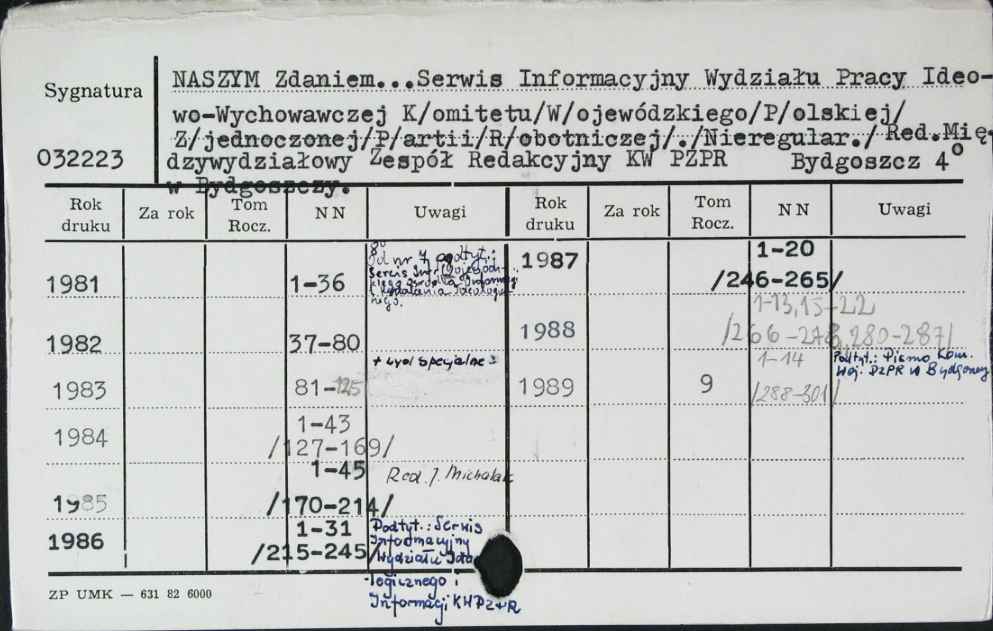 Sygnatura
032223
NASZYM Zdaniem...Serwis Informacyjny Wydziału Pracy Ideo-
wo-Wychowawczej K/omitetu/W/ojewódzkiego/P/olskiej/
Z/jednoczonej/P/artii/R/obotniczej/./Nieregular./ Red.Mię-
dzywydziałowy Zespół Redakcyjny KW PZPR Bydgoszcz 4°
w Bydgoszczy.
Rok druku Za rok Tom Rocz. NN Uwagi Rok druku Za rok Tom Rocz. NN Uwagi
1981 1-36 8° Od nr 7 podtyt.:
1987 1-20
/246-265/
1982 37-80
+ wyd specjalne
1988 1-13,15-22
/266-278,280-287/
1983 81-125
1989 9 1-14
/288-301/
Podtyt.: Pismo Kom.
Woj. PZPR w Bydgoszczy
1984 1-43
/127-169/
1985 1-45
/170-214/
Red. J. Michalak
1986 1-31
/215-245/
Podtyt.: Serwis
Informacyjny
Wydziału Ideo
logicznego i
Informacji KW PZPR
ZP UMK — 631 82 6000